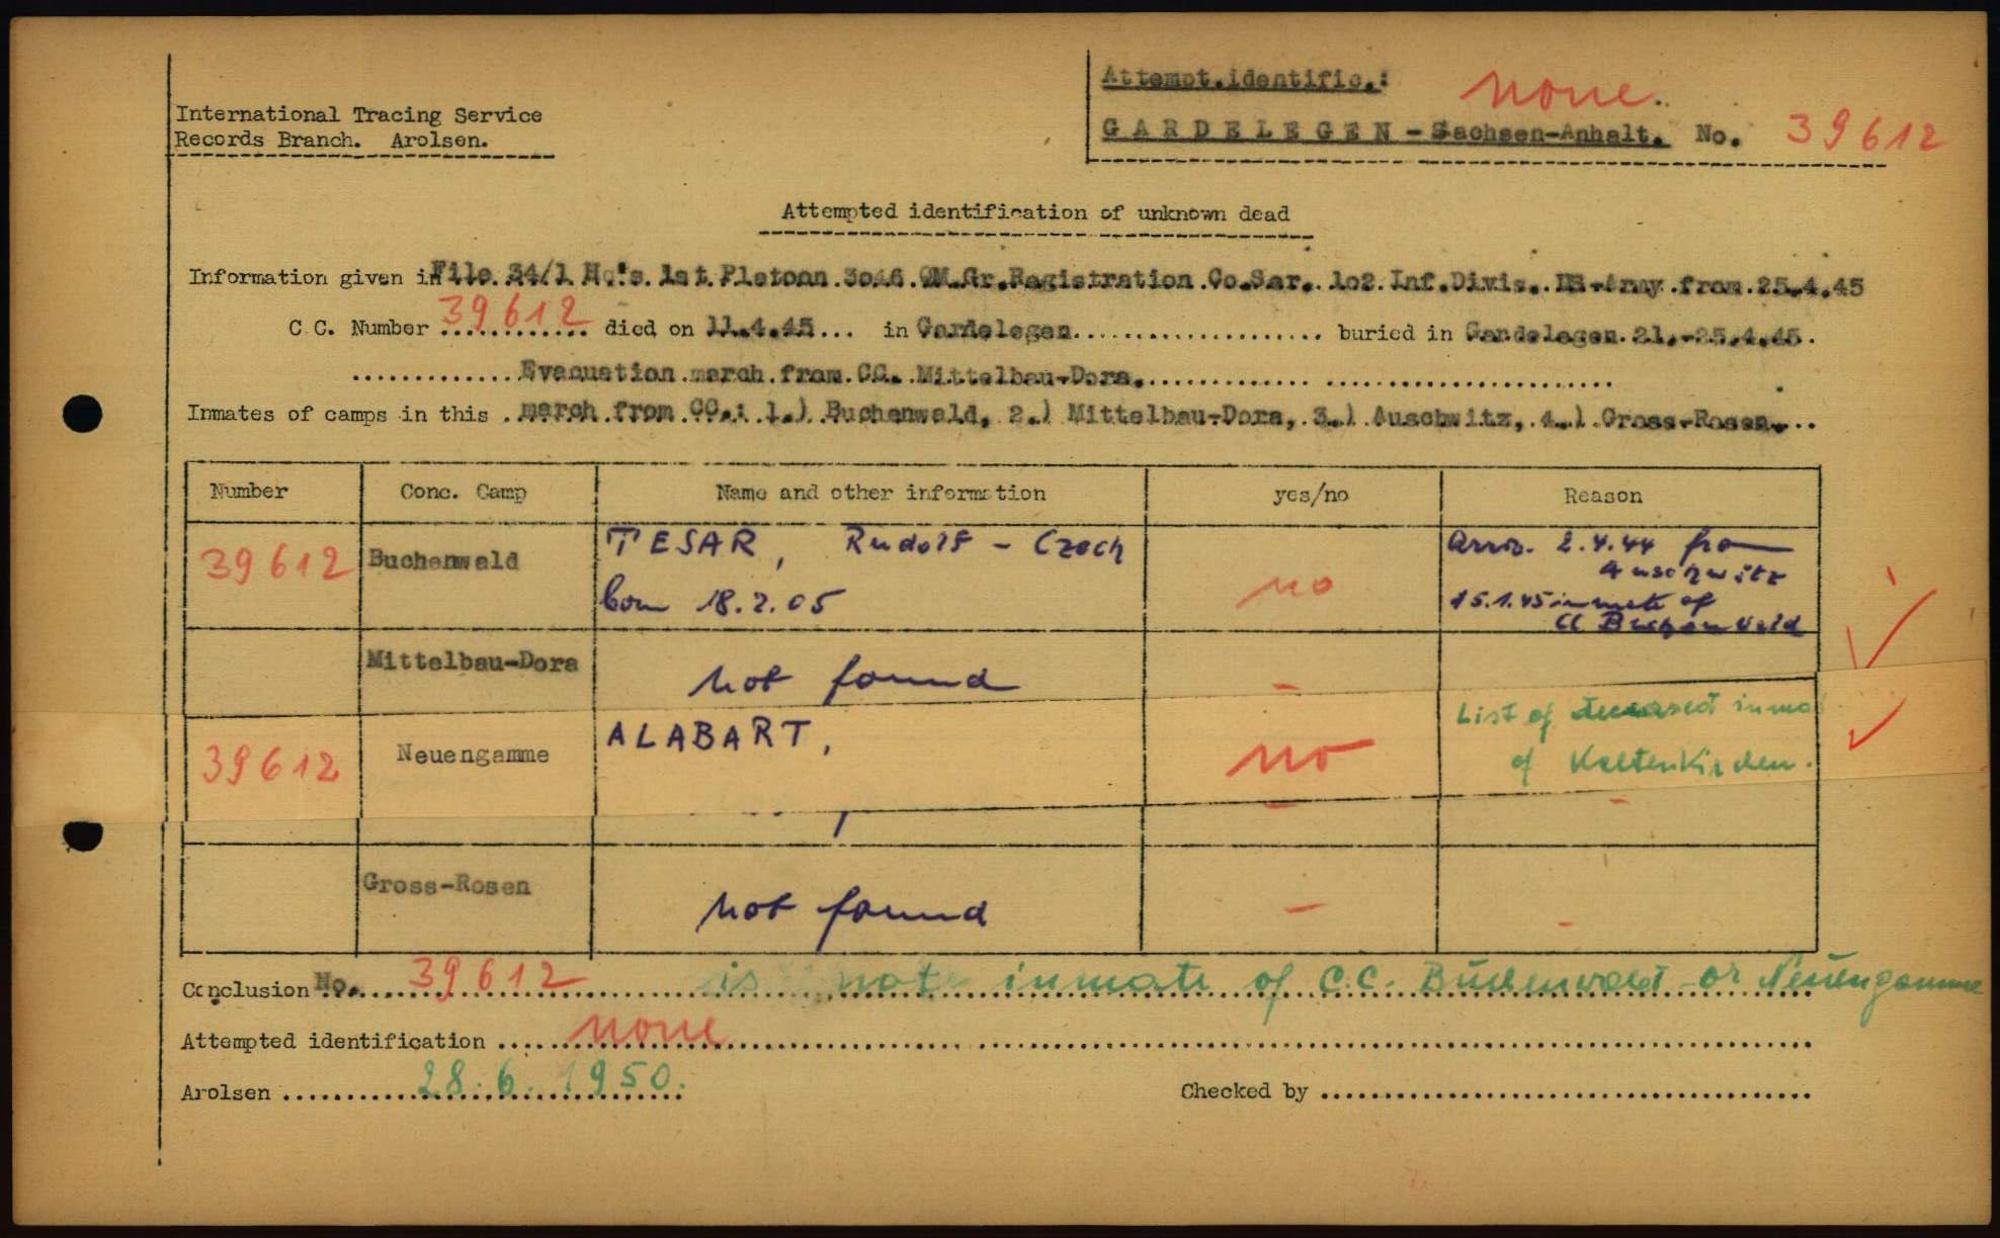 International Tracing Service
Records Branch. Arolsen.
Attempt.identific.: none.
GARDELEGEN - Sachsen-Anhalt. No. 39612
Attempted identification of unknown dead
Information given in File 34/1 Hq's. 1st. Platoon 3046 QM.Gr.Registration Co.Ser. 102 Inf.Divis. US-Army from 25.4.45
C C. Number 39612 died on 11.4.45 in Gardelegen buried in Gardelegen 21.-25.4.45.
Evacuation march from CC. Mittelbau-Dora.
Inmates of camps in this march from CC.: 1.) Buchenwald, 2.) Mittelbau-Dora, 3.) Auschwitz, 4.) Gross-Rosen.
Number Conc. Camp Name and other information yes/no Reason
39612 Buchenwald TESAR, Rudolf - Czech
born 18.2.05
no
Arriv. 2.4.44 from
Auschwitz
15.1.45 inmate of
CC Buchenwald
Mittelbau-Dora not found -
39612 Neuengamme ALABART, no
List of deceased inma
of Kaltenkirchen.
Gross-Rosen not found - -
Conclusion No. 39612 is not inmate of C.C. Buchenwald or Neuengamme
Attempted identification none
Arolsen 28.6.1950. Checked by